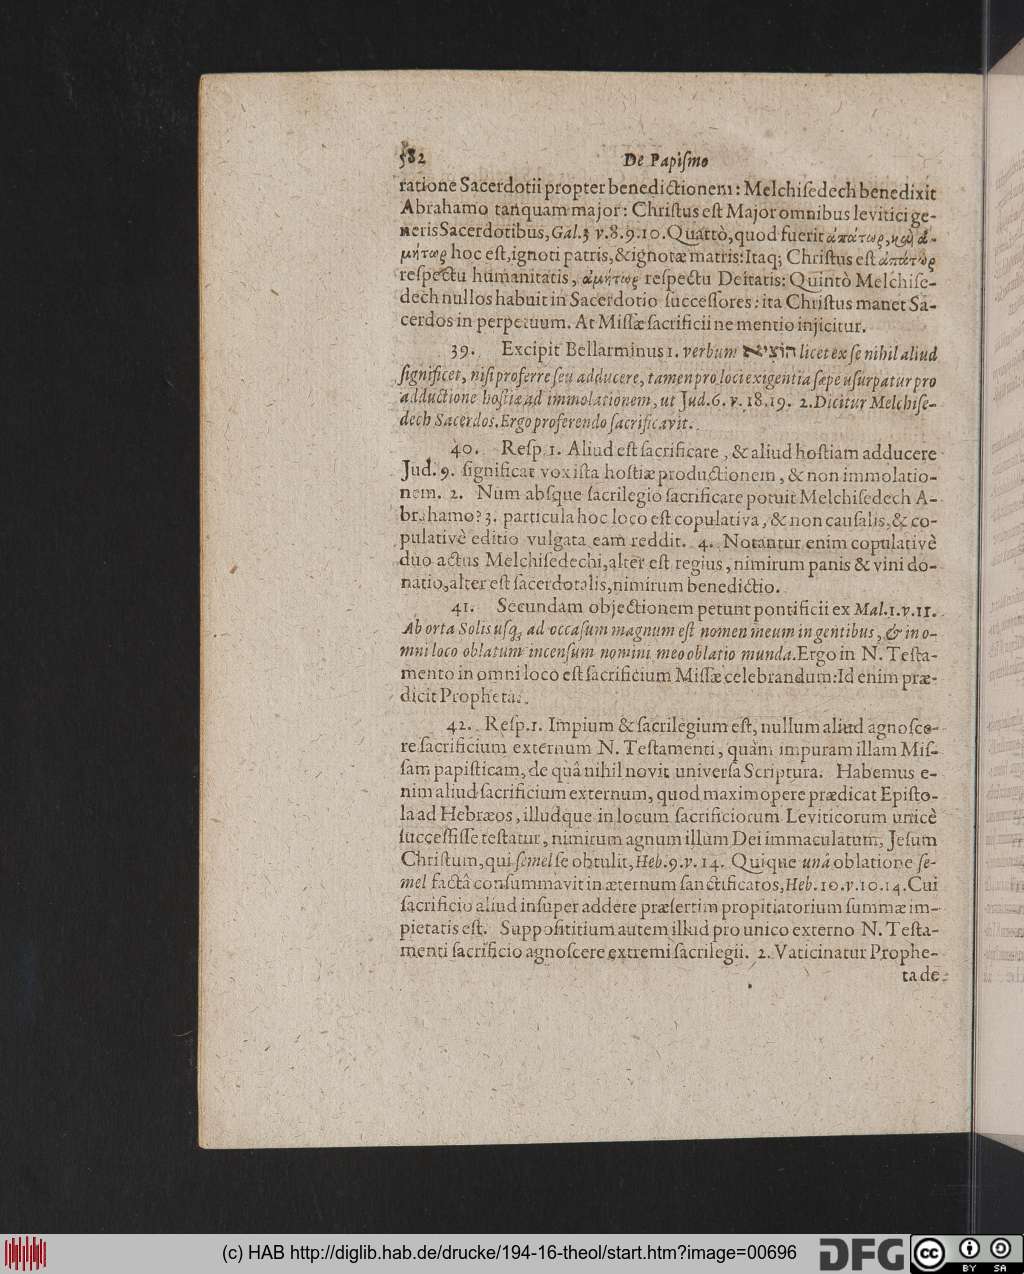 582 De Papiſmo
ratione Sacerdotii propter benedictionem: Melchiſedech benedixit
Abrahamo tanquam major: Chriſtus eſt Major omnibus levitici ge-
neris Sacerdotibus, Gal.3 v.8.9.10. Quartò, quod fuerit ἀπάτωρ, καὶ ἀ-
μήτωρ hoc eſt, ignoti patris, & ignotæ matris: Itaq; Chriſtus eſt ἀπάτωρ
reſpectu humanitatis, ἀμήτωρ reſpectu Deitatis: Quintò Melchiſe-
dech nullos habuit in Sacerdotio ſucceſſores: ita Chriſtus manet Sa-
cerdos in perpetuum. At Miſſæ ſacrificii ne mentio injicitur.
39. Excipit Bellarminus 1. verbum הוֹצִיא licet ex ſe nihil aliud
ſignificet, niſi proferre ſeu adducere, tamen pro loci exigentia ſæpe uſurpatur pro
adductione hoſtiæ ad immolationem, ut Jud.6. v. 18.19. 2. Dicitur Melchiſe-
dech Sacerdos. Ergo proferendo ſacrificavit.
40. Reſp. 1. Aliud eſt ſacrificare, & aliud hoſtiam adducere
Jud. 9. ſignificat vox iſta hoſtiæ productionem, & non immolatio-
nem. 2. Num absque ſacrilegio ſacrificare potuit Melchiſedech A-
brahamo? 3. particula hoc loco eſt copulativa, & non cauſalis, & co-
pulativè editio vulgata eam reddit. 4. Notantur enim copulativè
duo actus Melchiſedechi, alter eſt regius, nimirum panis & vini do-
natio, alter eſt ſacerdotalis, nimirum benedictio.
41. Secundam objectionem petunt pontificii ex Mal.1.v.11.
Ab orta Solis uſq; ad occaſum magnum eſt nomen meum in gentibus, & in o-
mni loco oblatum incenſum nomini meo oblatio munda. Ergo in N. Teſta-
mento in omni loco eſt ſacrificium Miſſæ celebrandum: Id enim præ-
dicit Propheta.
42. Reſp. 1. Impium & ſacrilegium eſt, nullum aliud agnoſce-
re ſacrificium externum N. Teſtamenti, quàm impuram illam Miſ-
ſam papiſticam, de quâ nihil novit univerſa Scriptura. Habemus e-
nim aliud ſacrificium externum, quod maximopere prædicat Epiſto-
la ad Hebræos, illudque in locum ſacrificiorum Leviticorum unicè
ſucceſſiſſe teſtatur, nimirum agnum illum Dei immaculatum, Jeſum
Chriſtum, qui ſemel ſe obtulit, Heb.9.v.14. Quique unâ oblatione ſe-
mel factâ conſummavit in æternum ſanctificatos, Heb.10.v.10.14. Cui
ſacrificio aliud inſuper addere præſertim propitiatorium ſummæ im-
pietatis eſt. Suppoſititium autem illud pro unico externo N. Teſta-
menti ſacrificio agnoſcere extremi ſacrilegii. 2. Vaticinatur Prophe-
ta de
(c) HAB http://diglib.hab.de/drucke/194-16-theol/start.htm?image=00696
DFG
cc
BY SA